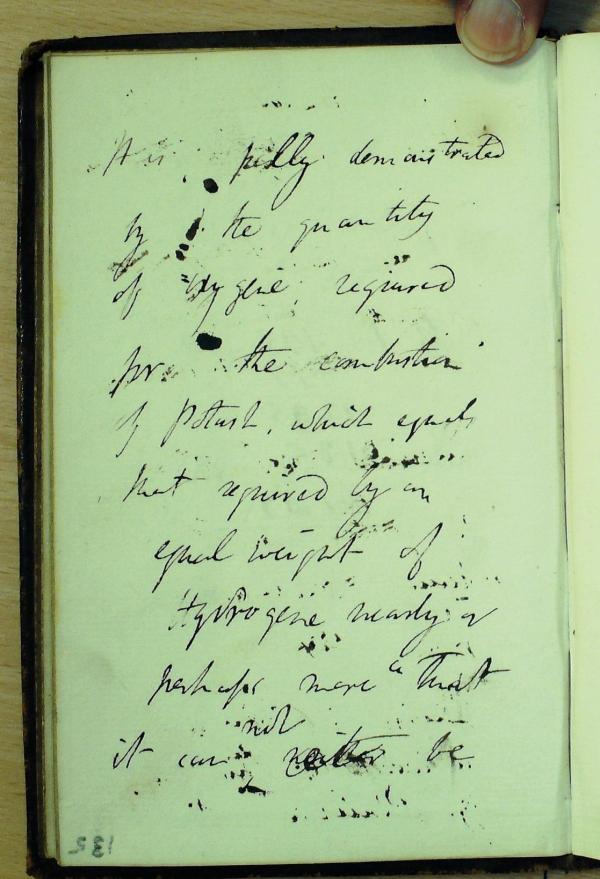 It is fully demonstrated
by the quantity
of Oxygene required
for the combustion
of Potash, which equals
that required by an
equal weight of
Hydrogene nearly or
perhaps more that
not
it can be
135